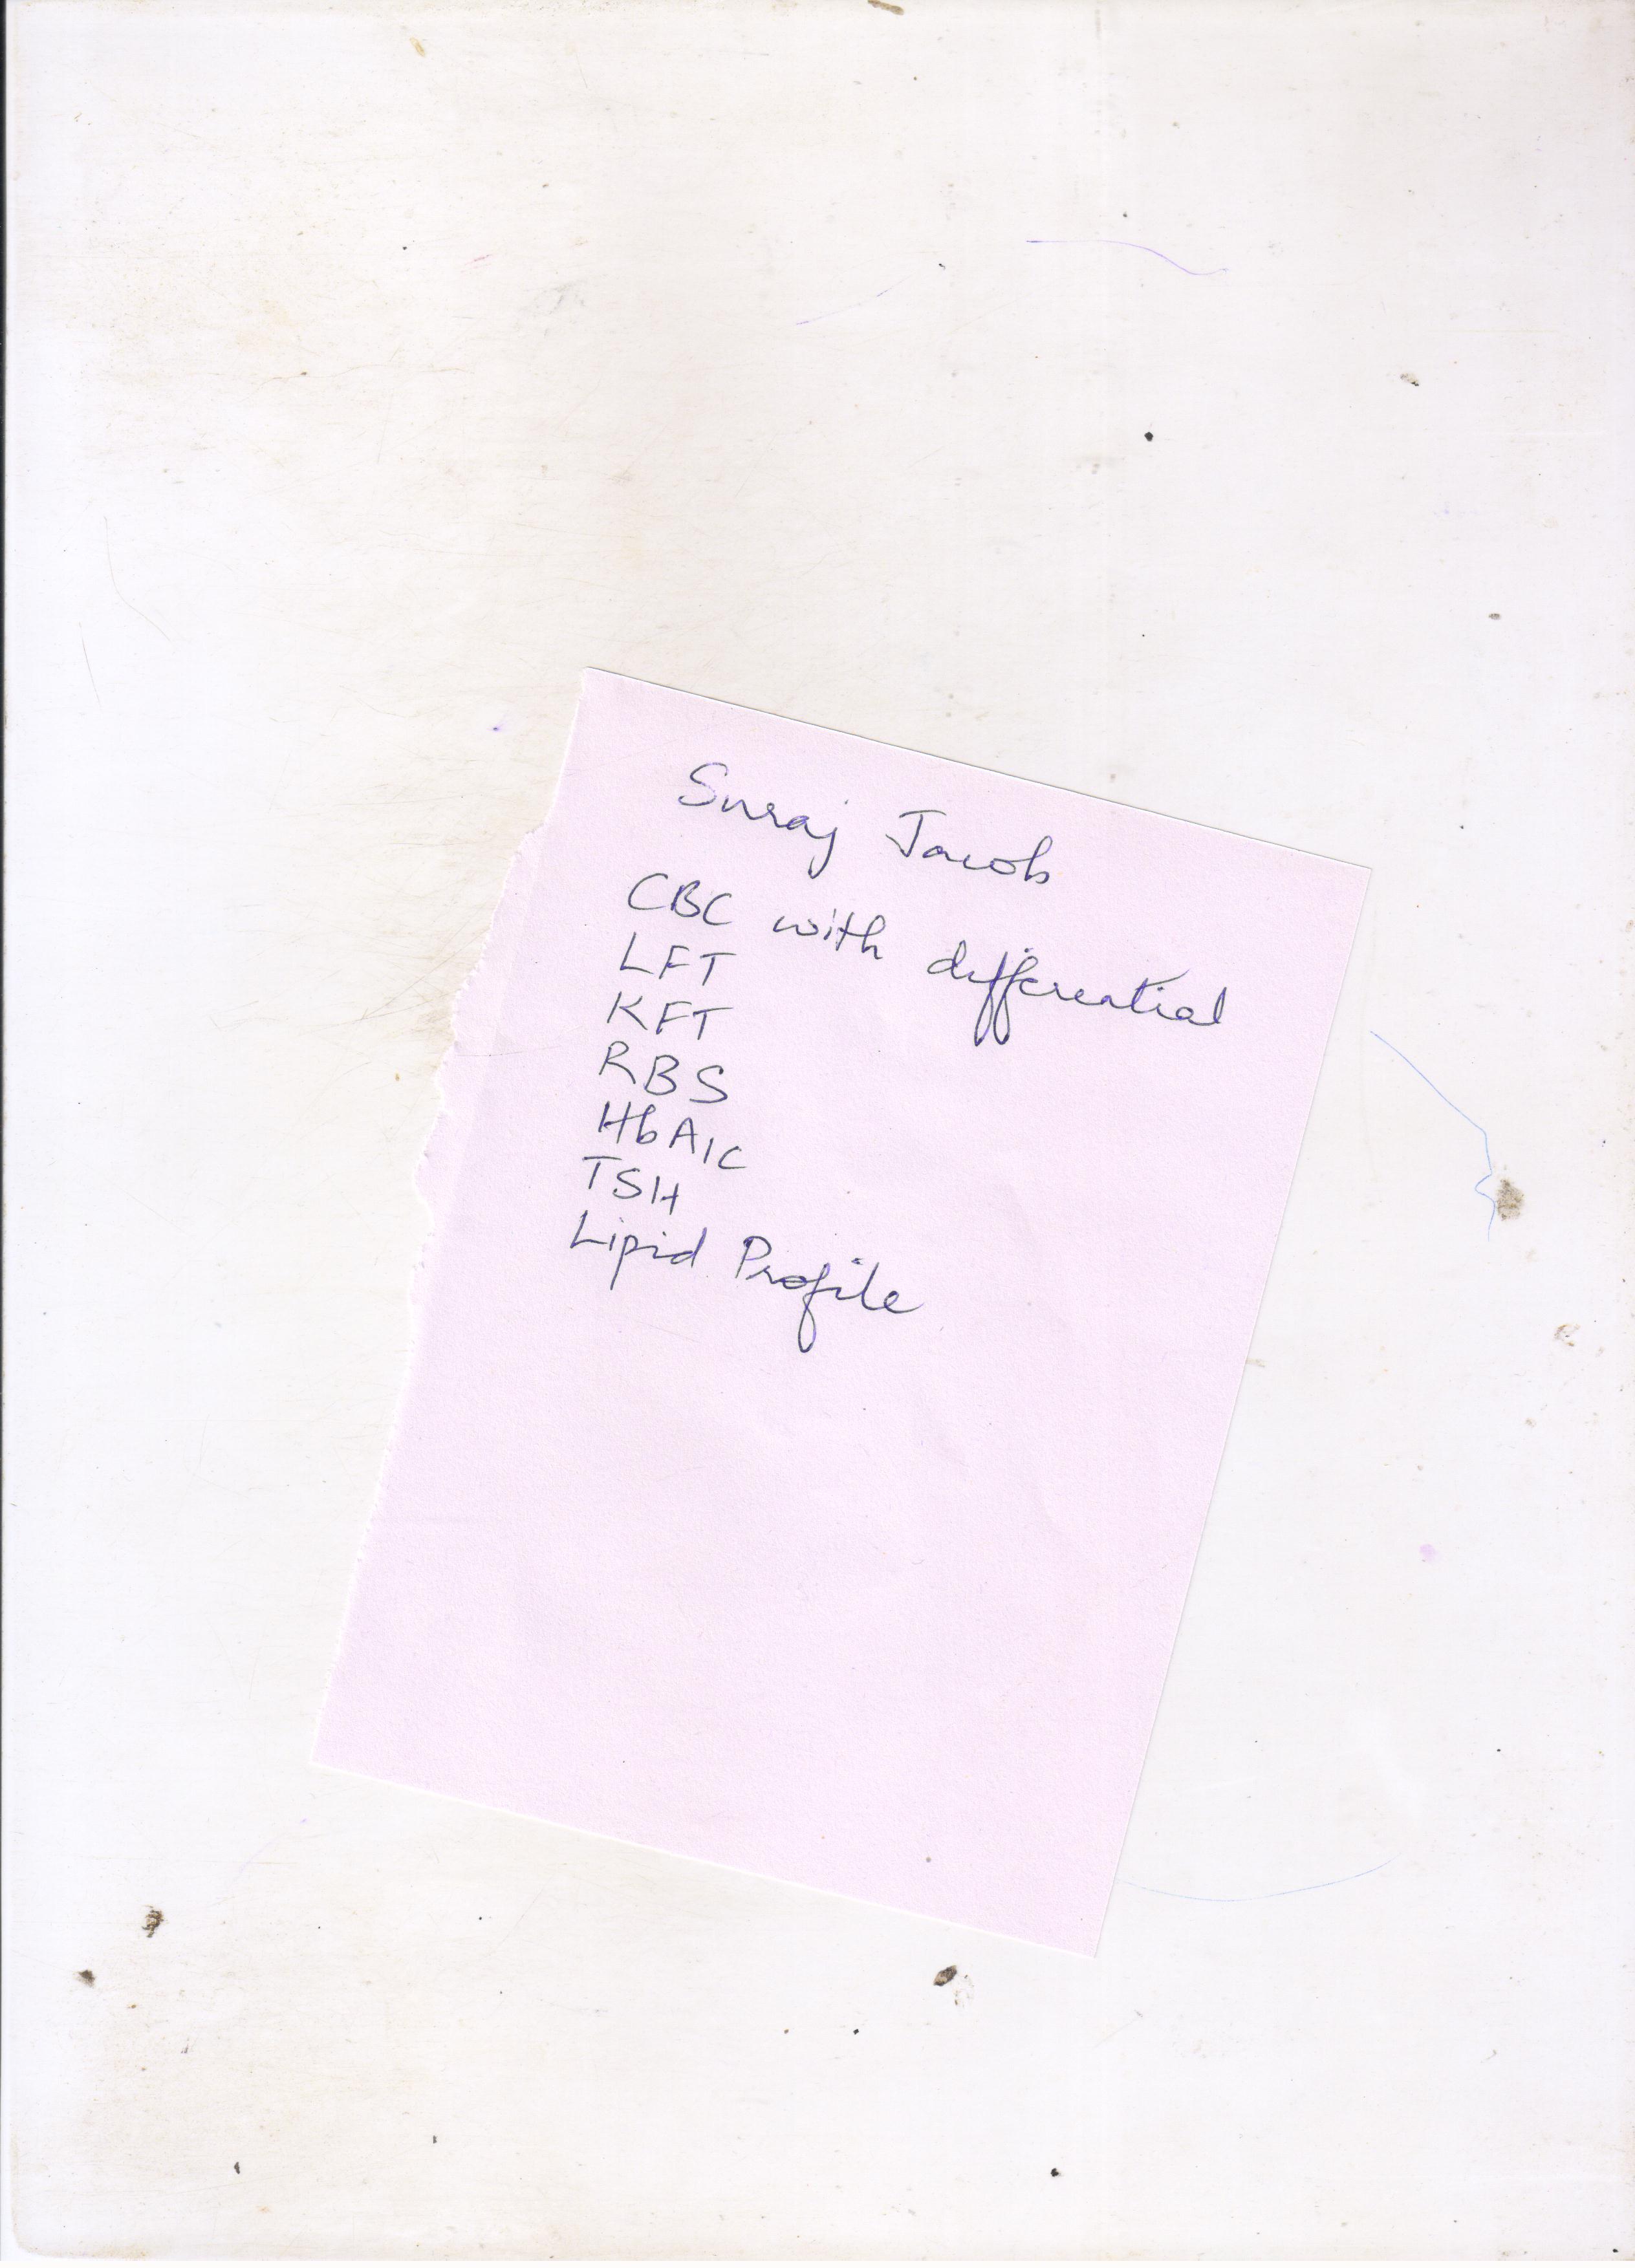 Suraj Jacob
CBC with differential
LFT
KFT
RBS
HbA1c
TSH
Lipid Profile